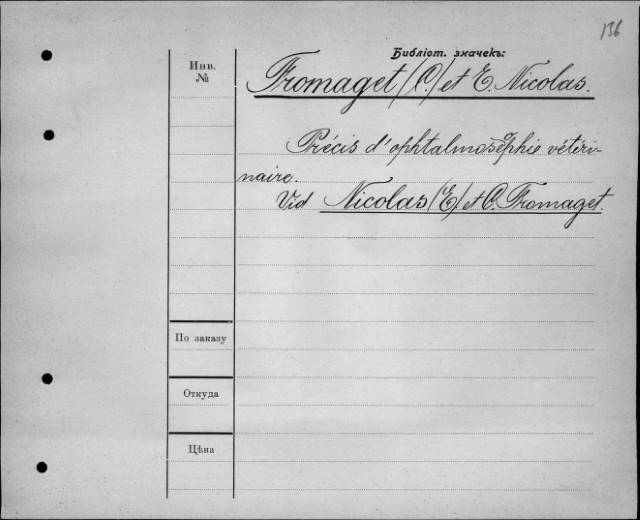 136
Библіот. значекъ:
Инв.
№
Fromaget (C.) et E. Nicolas.
Précis d'ophtalmoscophie vétéri-
naire.
Vid Nicolas (E.) et C. Fromaget.
По заказу
Откуда
Цѣна